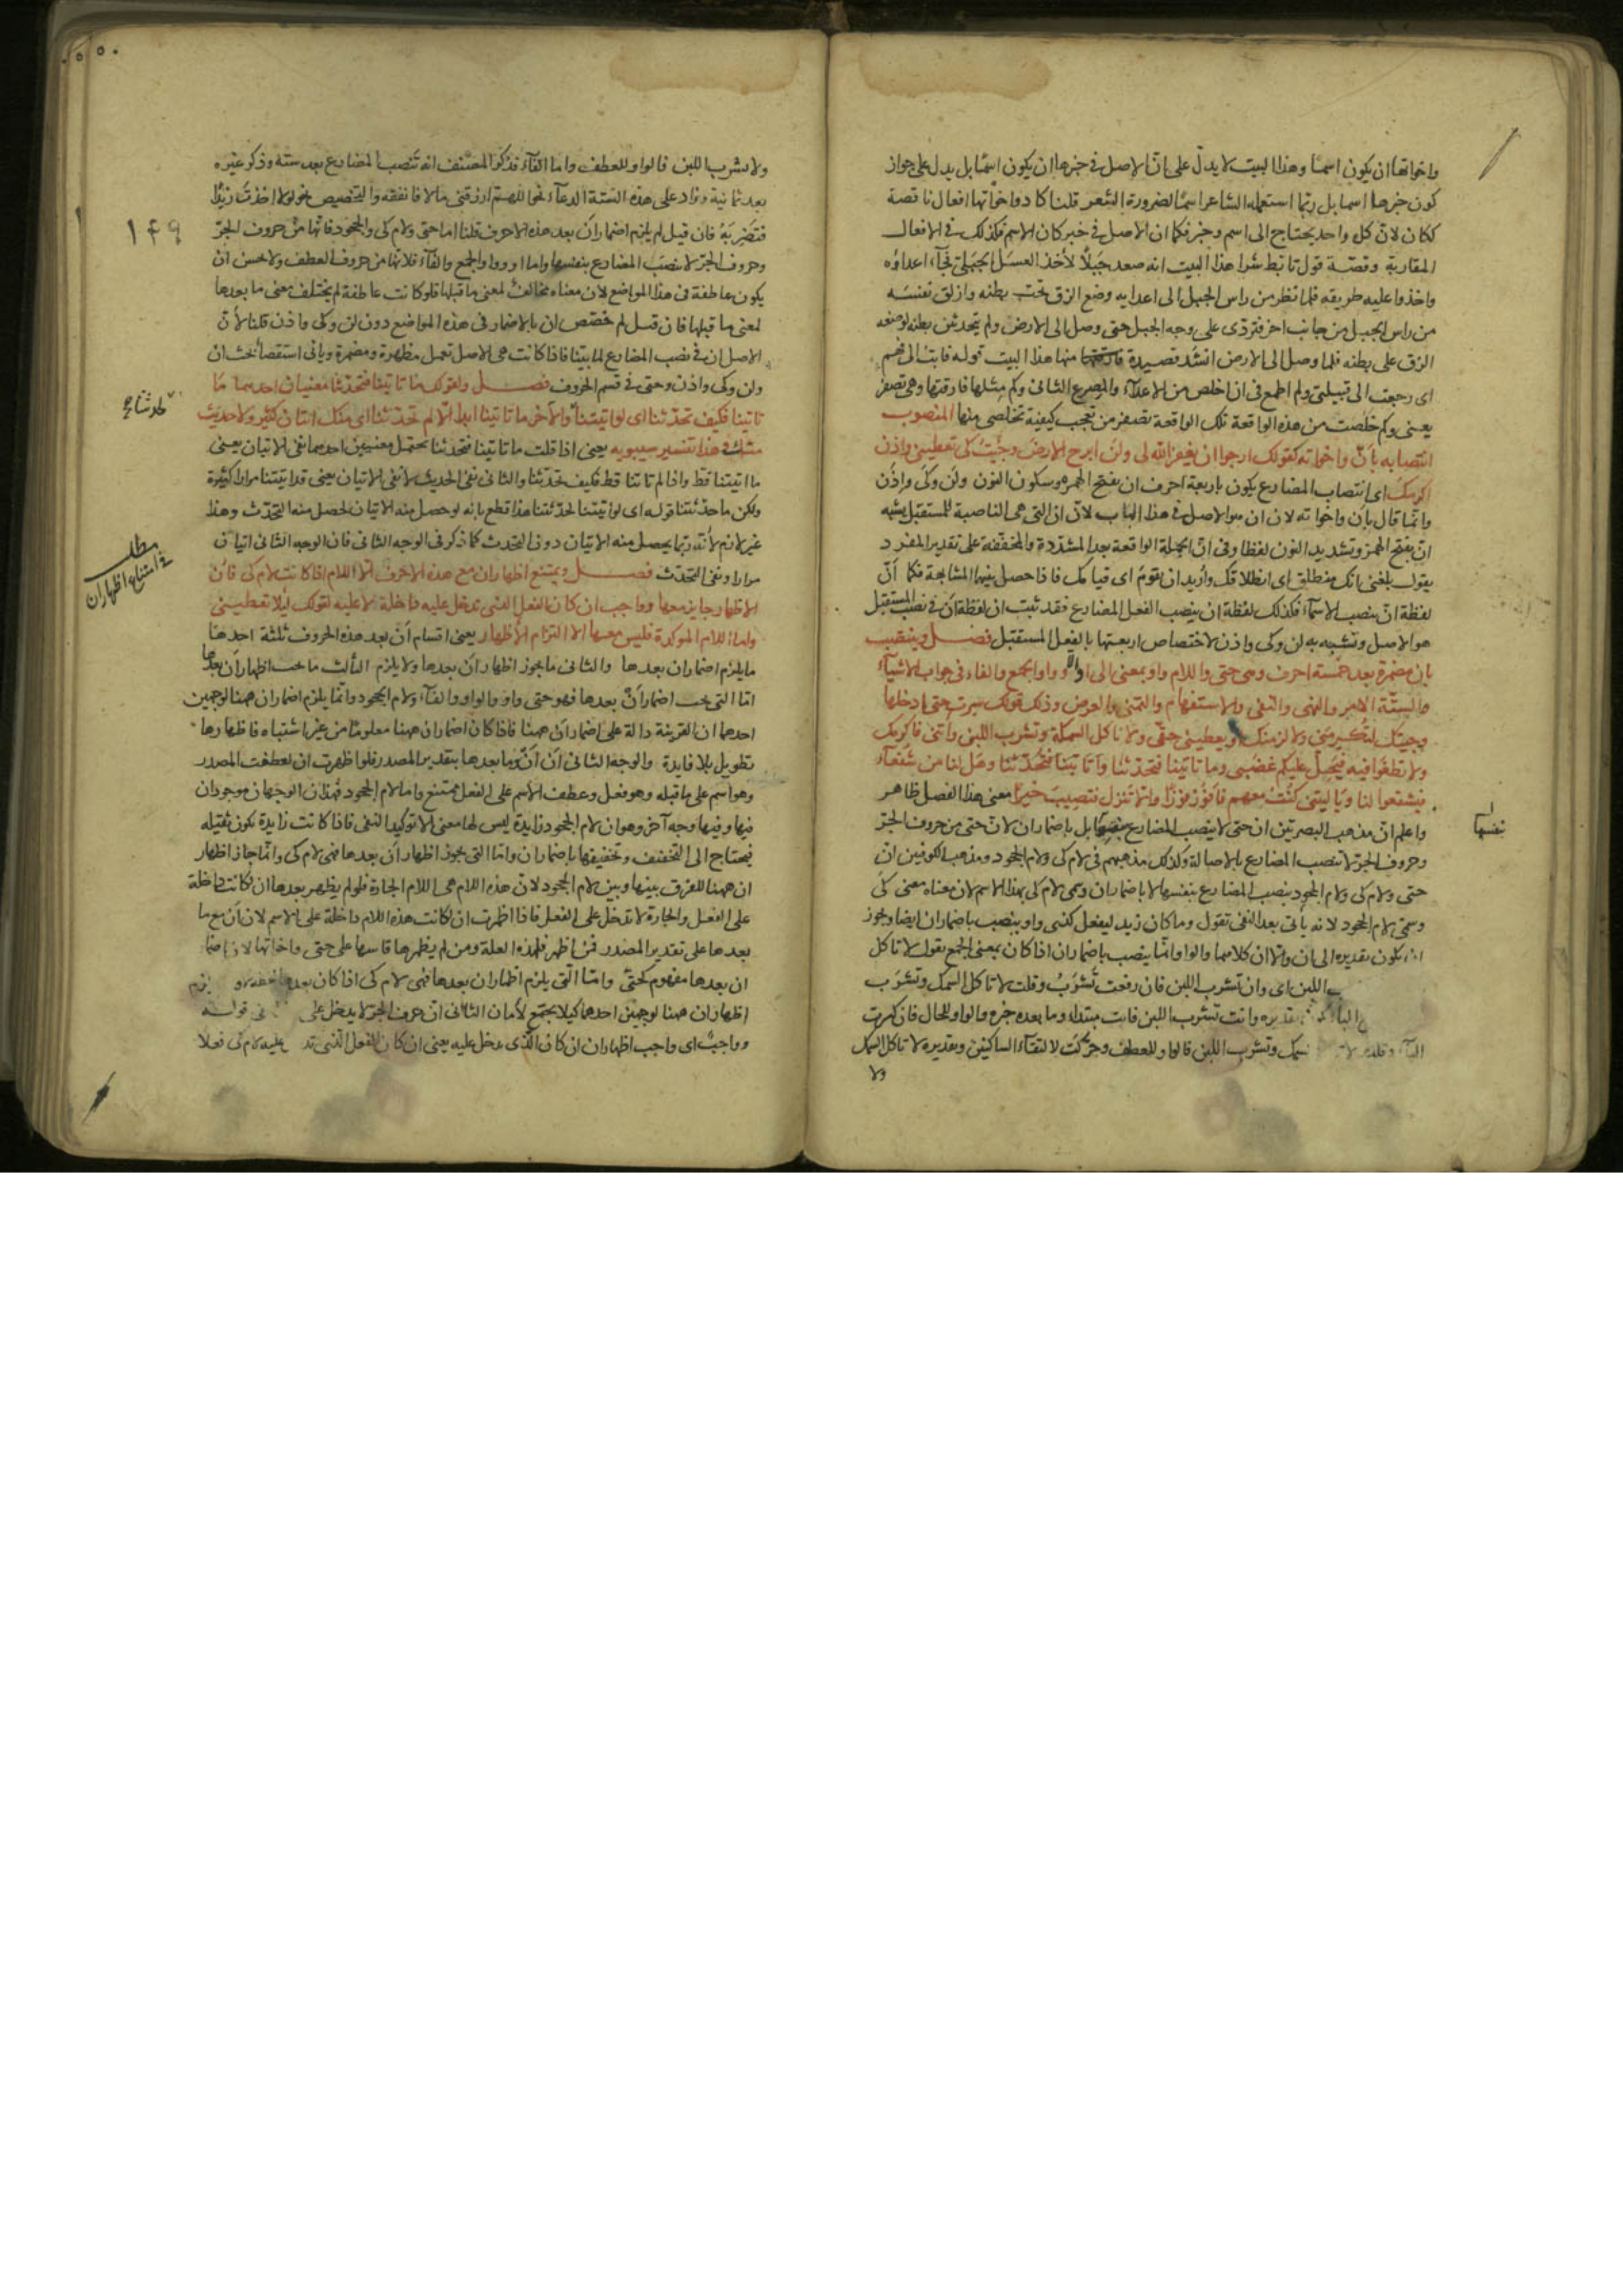 واخواتها ان يكون اسما وهذا البيت لا يدل على ان الاصل في خبرها ان يكون اسما بل يدل على جواز
كون خبرها اسما بل ربما استعمله الشاعر اسما لضرورة الشعر قلنا كاد واخواتها افعال ناقصة
ككان لان كل واحد يحتاج الى اسم وخبر فكما ان الاصل في خبر كان الاسم فكذلك في الافعال
المقاربة وقصة قول تابط شرا هذا البيت انه صعد جبلا لأخذ العسل الجبلي فجاء اعداؤه
واخذوا عليه طريقه فلما نظر من راس الجبل الى اعدايه وضع الزق تحت بطنه وازلق نفسه
من راس الجبل من جانب اخر فتردى على وجه الجبل حتى وصل الى الارض ولم يتخدش بطنه لوضعه
الزق على بطنه فلما وصل الى الارض انشد قصيدة منها هذا البيت قوله فابت الى فهم
اى رجعت الى قبيلتى ولم اطمع فى ان اخلص من الاعداء والمصرع الثانى وكم مثلها فارقتها وهى تصفر
يعنى وكم خلصت من هذه الواقعة تلك الواقعة تصفر من تعجب كيفية تخلصى منها المنصوب
انتصابه بان واخواته كقولك ارجوا ان يغفر الله لى ولن ابرح الارض وجئت كى تعطينى واذن
اكرمك اى انتصاب المضارع يكون باربعة احرف ان بفتح الهمزة وسكون النون ولن وكى واذن
وانما قال بان واخواته لان ان هو الاصل فى هذا الباب لان ان التى هى الناصبة للمستقبل يشبه
ان بفتح الهمز وتشديد النون لفظا وفى ان الجملة الواقعة بعد المشددة والمخففة على تقدير المفرد
يقول بلغنى انك منطلق اى انطلاقك واريد ان تقوم اى قيامك فاذا حصل بينهما المشابهة فكما ان
لفظة ان ينصب الاسماء فكذلك لفظة ان ينصب الفعل المضارع فقد ثبت ان لفظة ان فى نصب المستقبل
هو الاصل وتشبه به لن وكى واذن لاختصاص اربعتها بالفعل المستقبل فصل وينصب
بان مضمرة بعد خمسة احرف وهى حتى واللام واو بمعنى الى او الا وواو الجمع والفاء فى جواب الاشياء
والستة الامر والنهى والنفى والاستفهام والتمنى والعرض وذلك قولك سرت حتى ادخلها
وجيتك لتكرمنى ولالزمنك او يعطينى حقى ولا تاكل السمكة وتشرب اللبن واتنى فاكرمك
ولا تطغوا فيه فيحل عليكم غضبى وما تاتينا فتحدثنا وأتاتينا فتحدثنا وهل لنا من شفعاء
فيشفعوا لنا ويا ليتنى كنت معهم فافوز فوزا والا تنزل فتصيب خيرا معنى هذا الفصل ظاهر
واعلم ان مذهب البصريين ان حتى لا ينصب المضارع بنفسها بل باضمار ان لان حتى من حروف الجر
نفسها
وحروف الجر لا تنصب المضارع بالاصالة وكذلك مذهبهم فى لام كى ولام الجحود ومذهب الكوفيين ان
حتى ولام كى ولام الجحود ينصب المضارع بنفسها لا باضمار ان وسمى لام كى بهذا الاسم لان معناه معنى كى
وسمى لام الجحود لانه ياتى بعد النفى تقول وما كان زيد ليفعل كنى واو ينصب باضمار ان ايضا ويجوز
ان يكون تقديره الى ان والا ان كلاهما والواو انما ينصب باضمار ان اذا كان بمعنى الجمع يقول لا تاكل
اللبن اى وان تشرب اللبن فان رفعت تشرب وقلت لا تاكل السمك وتشرب
وانت تشرب اللبن فانت مبتداء وما بعده خبره والواو للحال فان كسرت
الباء وقلت لا سمك وتشرب اللبن فالواو للعطف وحركت لالتقاء الساكنين وتقديره لا تاكل السمك
ولا
ولا تشرب اللبن فالواو للعطف واما الفاء فذكر المصنف انه تنصب المضارع بعد ستة وذكر غيره
بعد ثمانية وزاد على هذه الستة الدعاء نحو اللهم ارزقنى مالا فانفقه والتخصيص نحو لولا اخذت زيدا
فتضربه فان قيل لم يلزم اضمار ان بعد هذه الاحرف قلنا اما حتى ولام كى والجحود فانها من حروف الجر
۱۴۹
وحروف الجر لا تنصب المضارع بنفسها واما او وواو الجمع والفاء فلانها من حروف العطف ولا حسن ان
يكون عاطفة فى هذا المواضع لان معناه مخالف لمعنى ما قبلها فلو كانت عاطفة لم يختلف معنى ما بعدها
لمعنى ما قبلها فان قيل لم خصص ان بالاضمار فى هذه المواضع دون لن وكى واذن قلنا لان
الاصل ان فى نصب المضارع لما بيننا فاذا كانت هى الاصل تعمل مظهرة ومضمرة وياتى استقصا بحث ان
ولن وكى واذن وحتى فى قسم الحروف فصل ولقولك ما تاتينا فتحدثنا معنيان احدهما ما
تاتينا فكيف تحدثنا اى لو اتيتنا والاخر ما تاتينا ابدا الا لم تحدثنا اى منك اتيان كثير ولا حديث
منك وهذا تفسير سيبويه يعنى اذا قلت ما تاتينا فتحدثنا يحتمل معنيين احدهما نفى الاتيان يعنى
ما اتيتنا قط واذا لم تاتنا قط فكيف تحدثنا والثانى نفى الحديث لا نفى الاتيان يعنى قد اتيتنا مرارا كثيرة
ولكن ما حدثتنا قوله اى لو اتيتنا لحدثتنا هذا قطع بانه لو حصل منه الاتيان لحصل منه التحدث وهذا
غير لازم لانه ربما يحصل منه الاتيان دون التحدث كما ذكر فى الوجه الثانى فان الوجه الثانى اتيان
مطلب
فى امتناع اظهار ان
مرارا ونفى التحدث فصل ويمتنع اظهار ان مع هذه الاحرف الا اللام اذا كانت لام كى فان
الاظهار جايز معها وواجب ان كان الفعل الذى تدخل عليه داخلة لا عليه لقولك ليلا تعطينى
واما اللام الموكدة فليس معها الا التزام الاظهار يعنى اقسام ان بعد هذه الحروف ثلثة احدها
ما يلزم اضمار ان بعدها والثانى ما يجوز اظهار ان بعدها ولا يلزم الثالث ما يجب اظهار ان بعدها
اما التى يجب اضمار ان بعدها فهو حتى واو والواو والفاء ولام الجحود وانما يلزم اضمار ان ههنا لوجهين
احدهما ان القرينة دالة على اضمار ان ههنا فاذا كان اضمار ان ههنا معلوما من غير اشتباه فاظهارها
تطويل بلا فايدة والوجه الثانى ان ان وما بعدها بتقدير المصدر فلو اظهرت ان لعطفت المصدر
وهو اسم على ما قبله وهو فعل وعطف الاسم على الفعل ممتنع واما لام الجحود فهذان الوجهان موجودان
فيها وفيها وجه اخر وهو ان لام الجحود زايدة ليس لها معنى الا توكيد النفى فاذا كانت زايدة تكون ثقيله
فيحتاج الى التخفيف وتخفيفها باضمار ان واما التى يجوز اظهار ان بعدها فهى لام كى وانما جاز اظهار
ان ههنا للفرق بينها وبين لام الجحود لان هذه اللام هى اللام الجارة فلو لم يظهر بعدها ان لكانت داخلة
على الفعل والجارة لا تدخل على الفعل فاذا اظهرت ان لكانت هذه اللام داخلة على الاسم لان ان مع ما
بعدها على تقدير المصدر فمن اظهر فلهذه العلة ومن لم يظهرها قاسها على حتى واخاتها لان
ان بعدها مفهوم كحتى واما التى يلزم اظهار ان بعدها فهى لام كى اذا كان
اظهار ان ههنا لوجهين احدهما كيلا يجتمع لامان الثانى ان حرف الجر لا يدخل على قوله
وواجب اى واجب اظهار ان ان كان الذى يدخل عليه يعنى ان كان الفعل الذى عليه لام كى فعلا